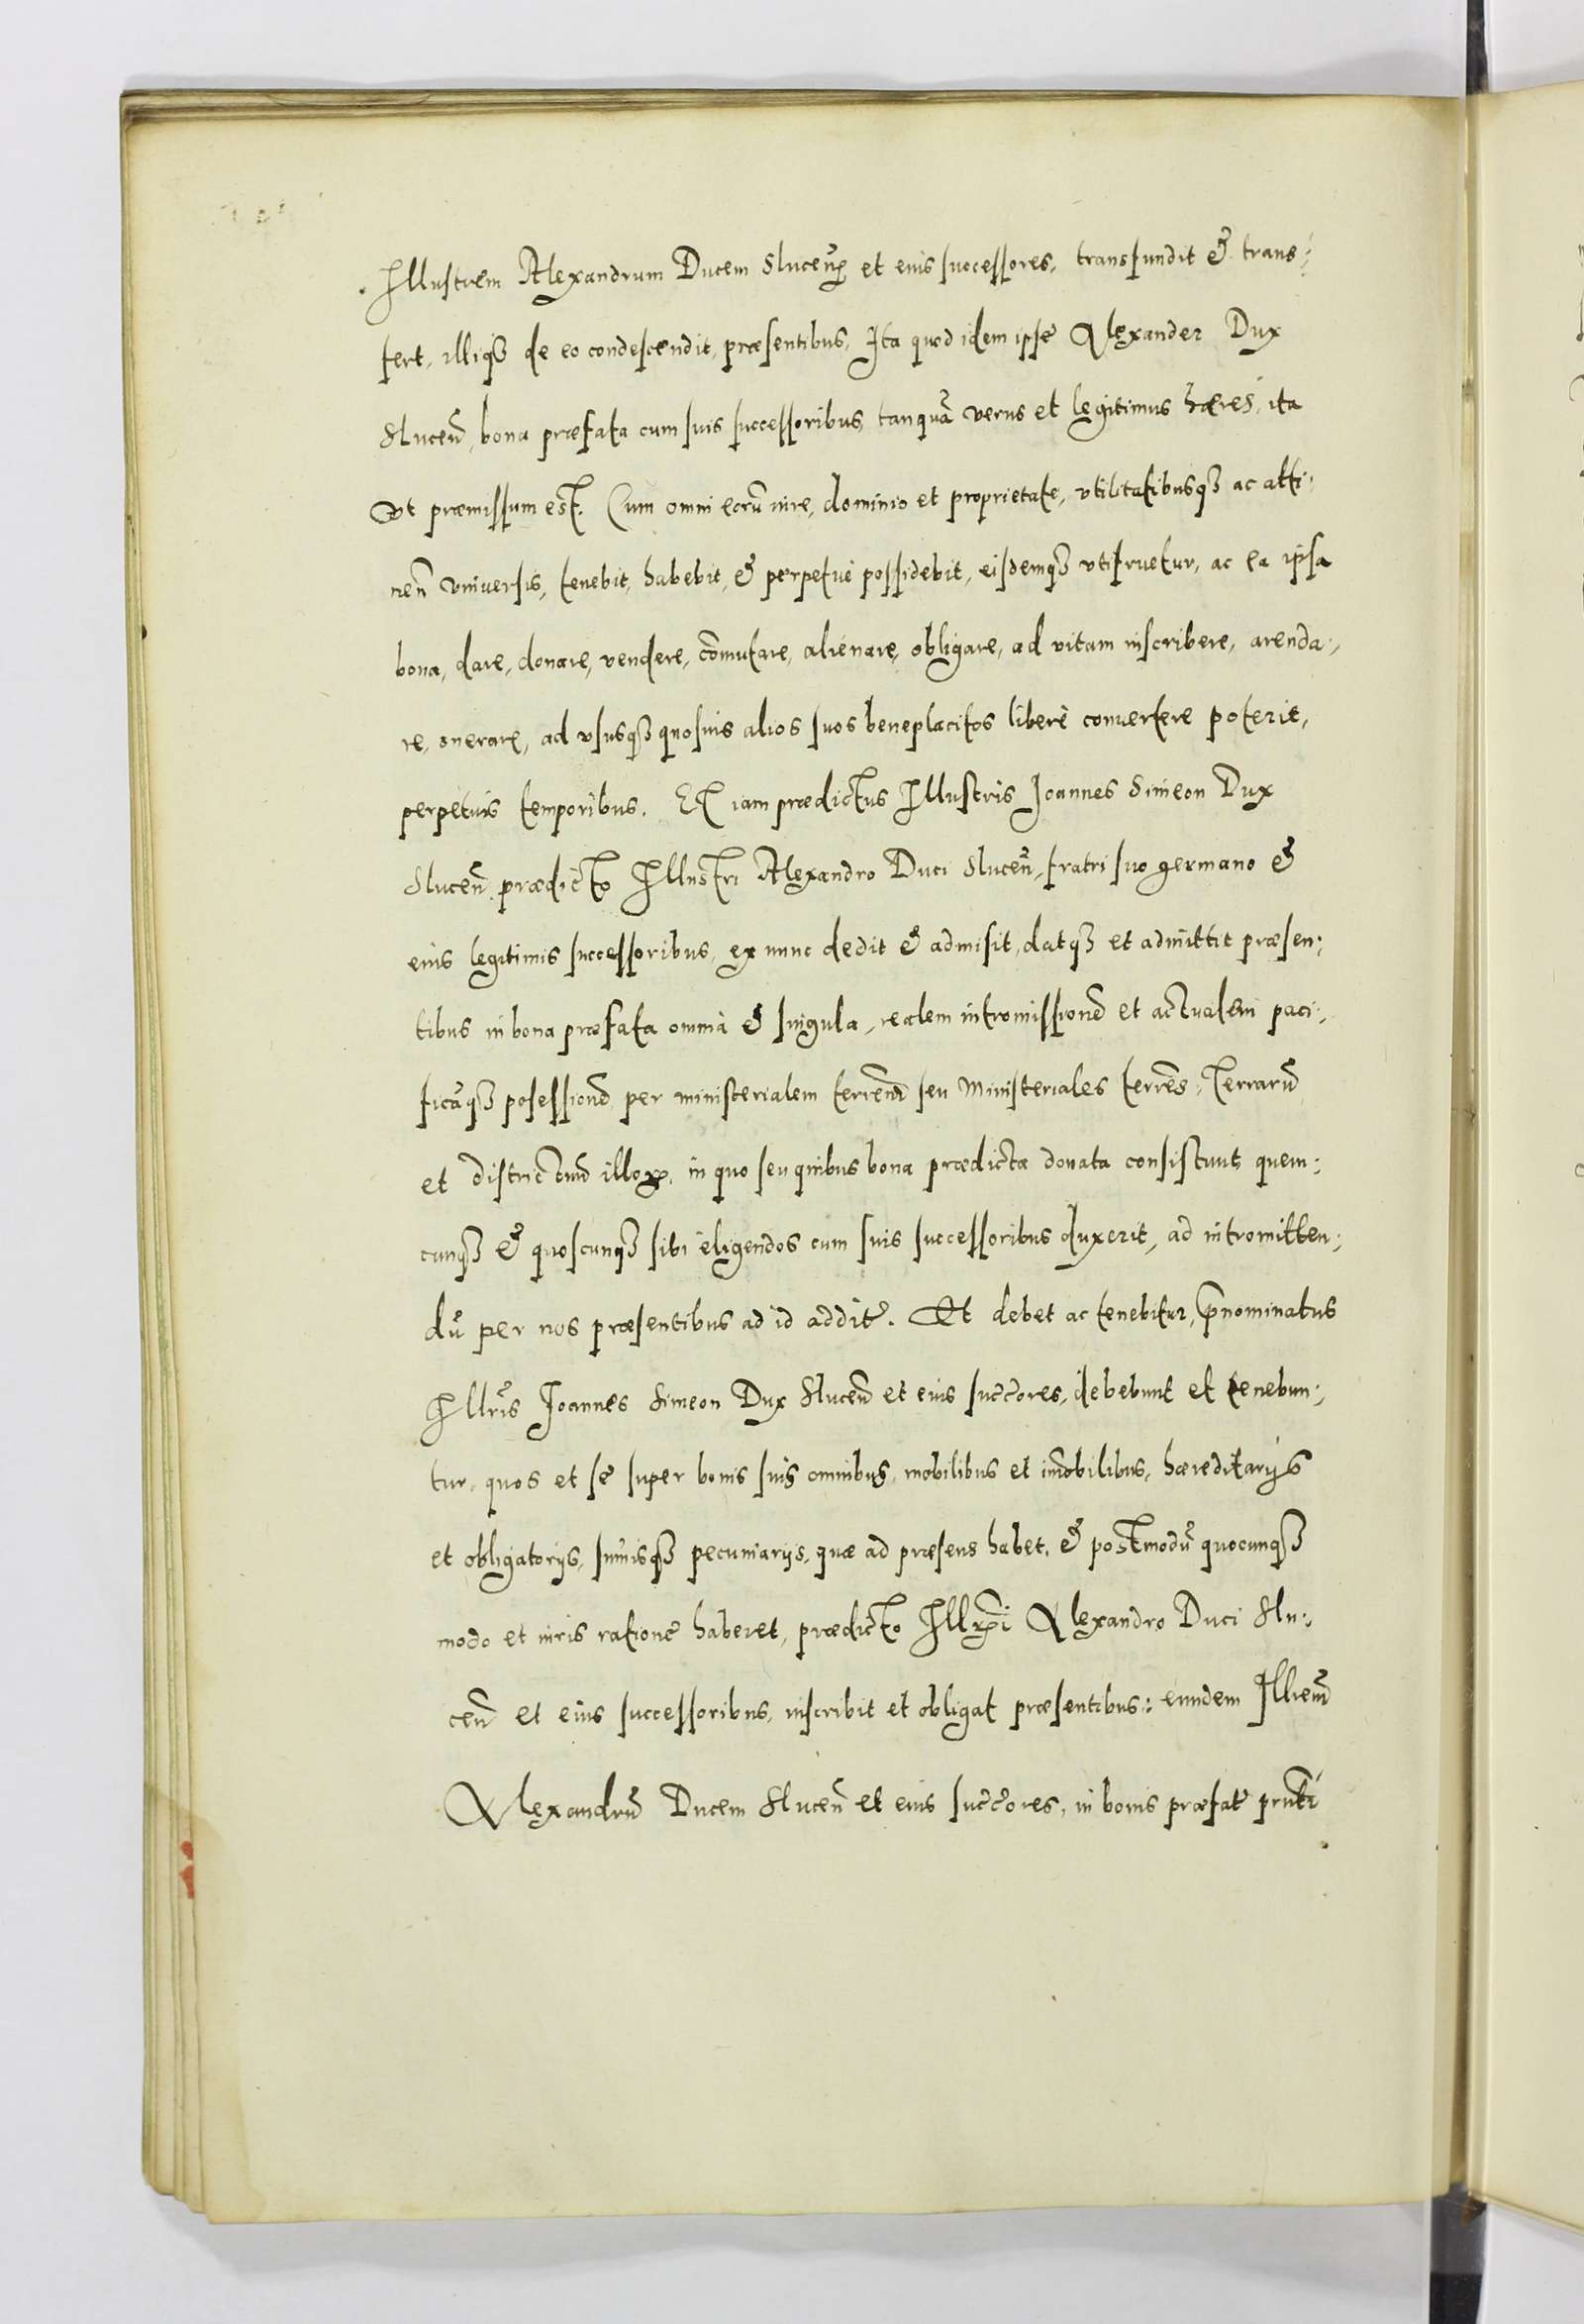 Illustrem Alexandrum Ducem Slucen̄ et eius successores, transfundit & trans:
fert, illiq₃ de eo condescendit, præsentibus, Ita quod idem ipse Alexander Dux
Slucen̄, bona præfata cum suis successoribus, tanquā verus et legitimus hæres, ita
Vt præmissum est. Cum omni eorū iure, dominio et proprietate, vtilitatibusq₃ ac atti:
nen̄ vniuersis, tenebit, habebit, & perpetuè possidebit, eisdemq₃ vtifruetur, ac ea ipsa
bona, dare, donare, vendere, cōmutare, alienare, obligare, ad vitam inscribere, arenda:
re, onerare, ad vsusq₃ quosuis alios suos beneplacitos liberè conuertere poterit,
perpetuis temporibus. Et iam prædictus Illustris Joannes Simeon Dux
Slucen̄ prædicto Illustri Alexandro Duci Slucen̄, fratri suo germano &
eius legitimis successoribus, ex nunc dedit & admisit, datq₃ et admittit præsen:
tibus in bona præfata omnia & singula, realem intromissionē et actualem paci:
ficāq₃ posessionē per ministerialem terren̄ seu Ministeriales terren̄s, Terrarū
et districtuū illoꝝ, in quo seu quibus bona prædicta donata consistunt, quem:
cunq₃ & quoscunq₃ sibi eligendos cum suis successoribus duxerit, ad intromitten:
dū per nos præsentibus ad id addit̄. Et debet ac tenebitur, p̄nominatus
Illr̄is Joannes Simeon Dux Slucen̄ et eius succ̄ores, debebunt et tenebun:
tur, quos et se super bonis suis omnibus, mobilibus et im̄obilibus, hæreditarijs
et obligatorijs, sum̄isq₃ pecuniarijs, quæ ad præsens habet, & postmodū quocunq₃
modo et iuris ratione haberet, prædicto Illr̄i Alexandro Duci Slu:
cen̄ et eius successoribus, inscribit et obligat præsentibus: eundem Illrem̄
Alexandrū Ducem Slucen̄ et eius succ̄ores, in bonis præfat̄ pn̄ti